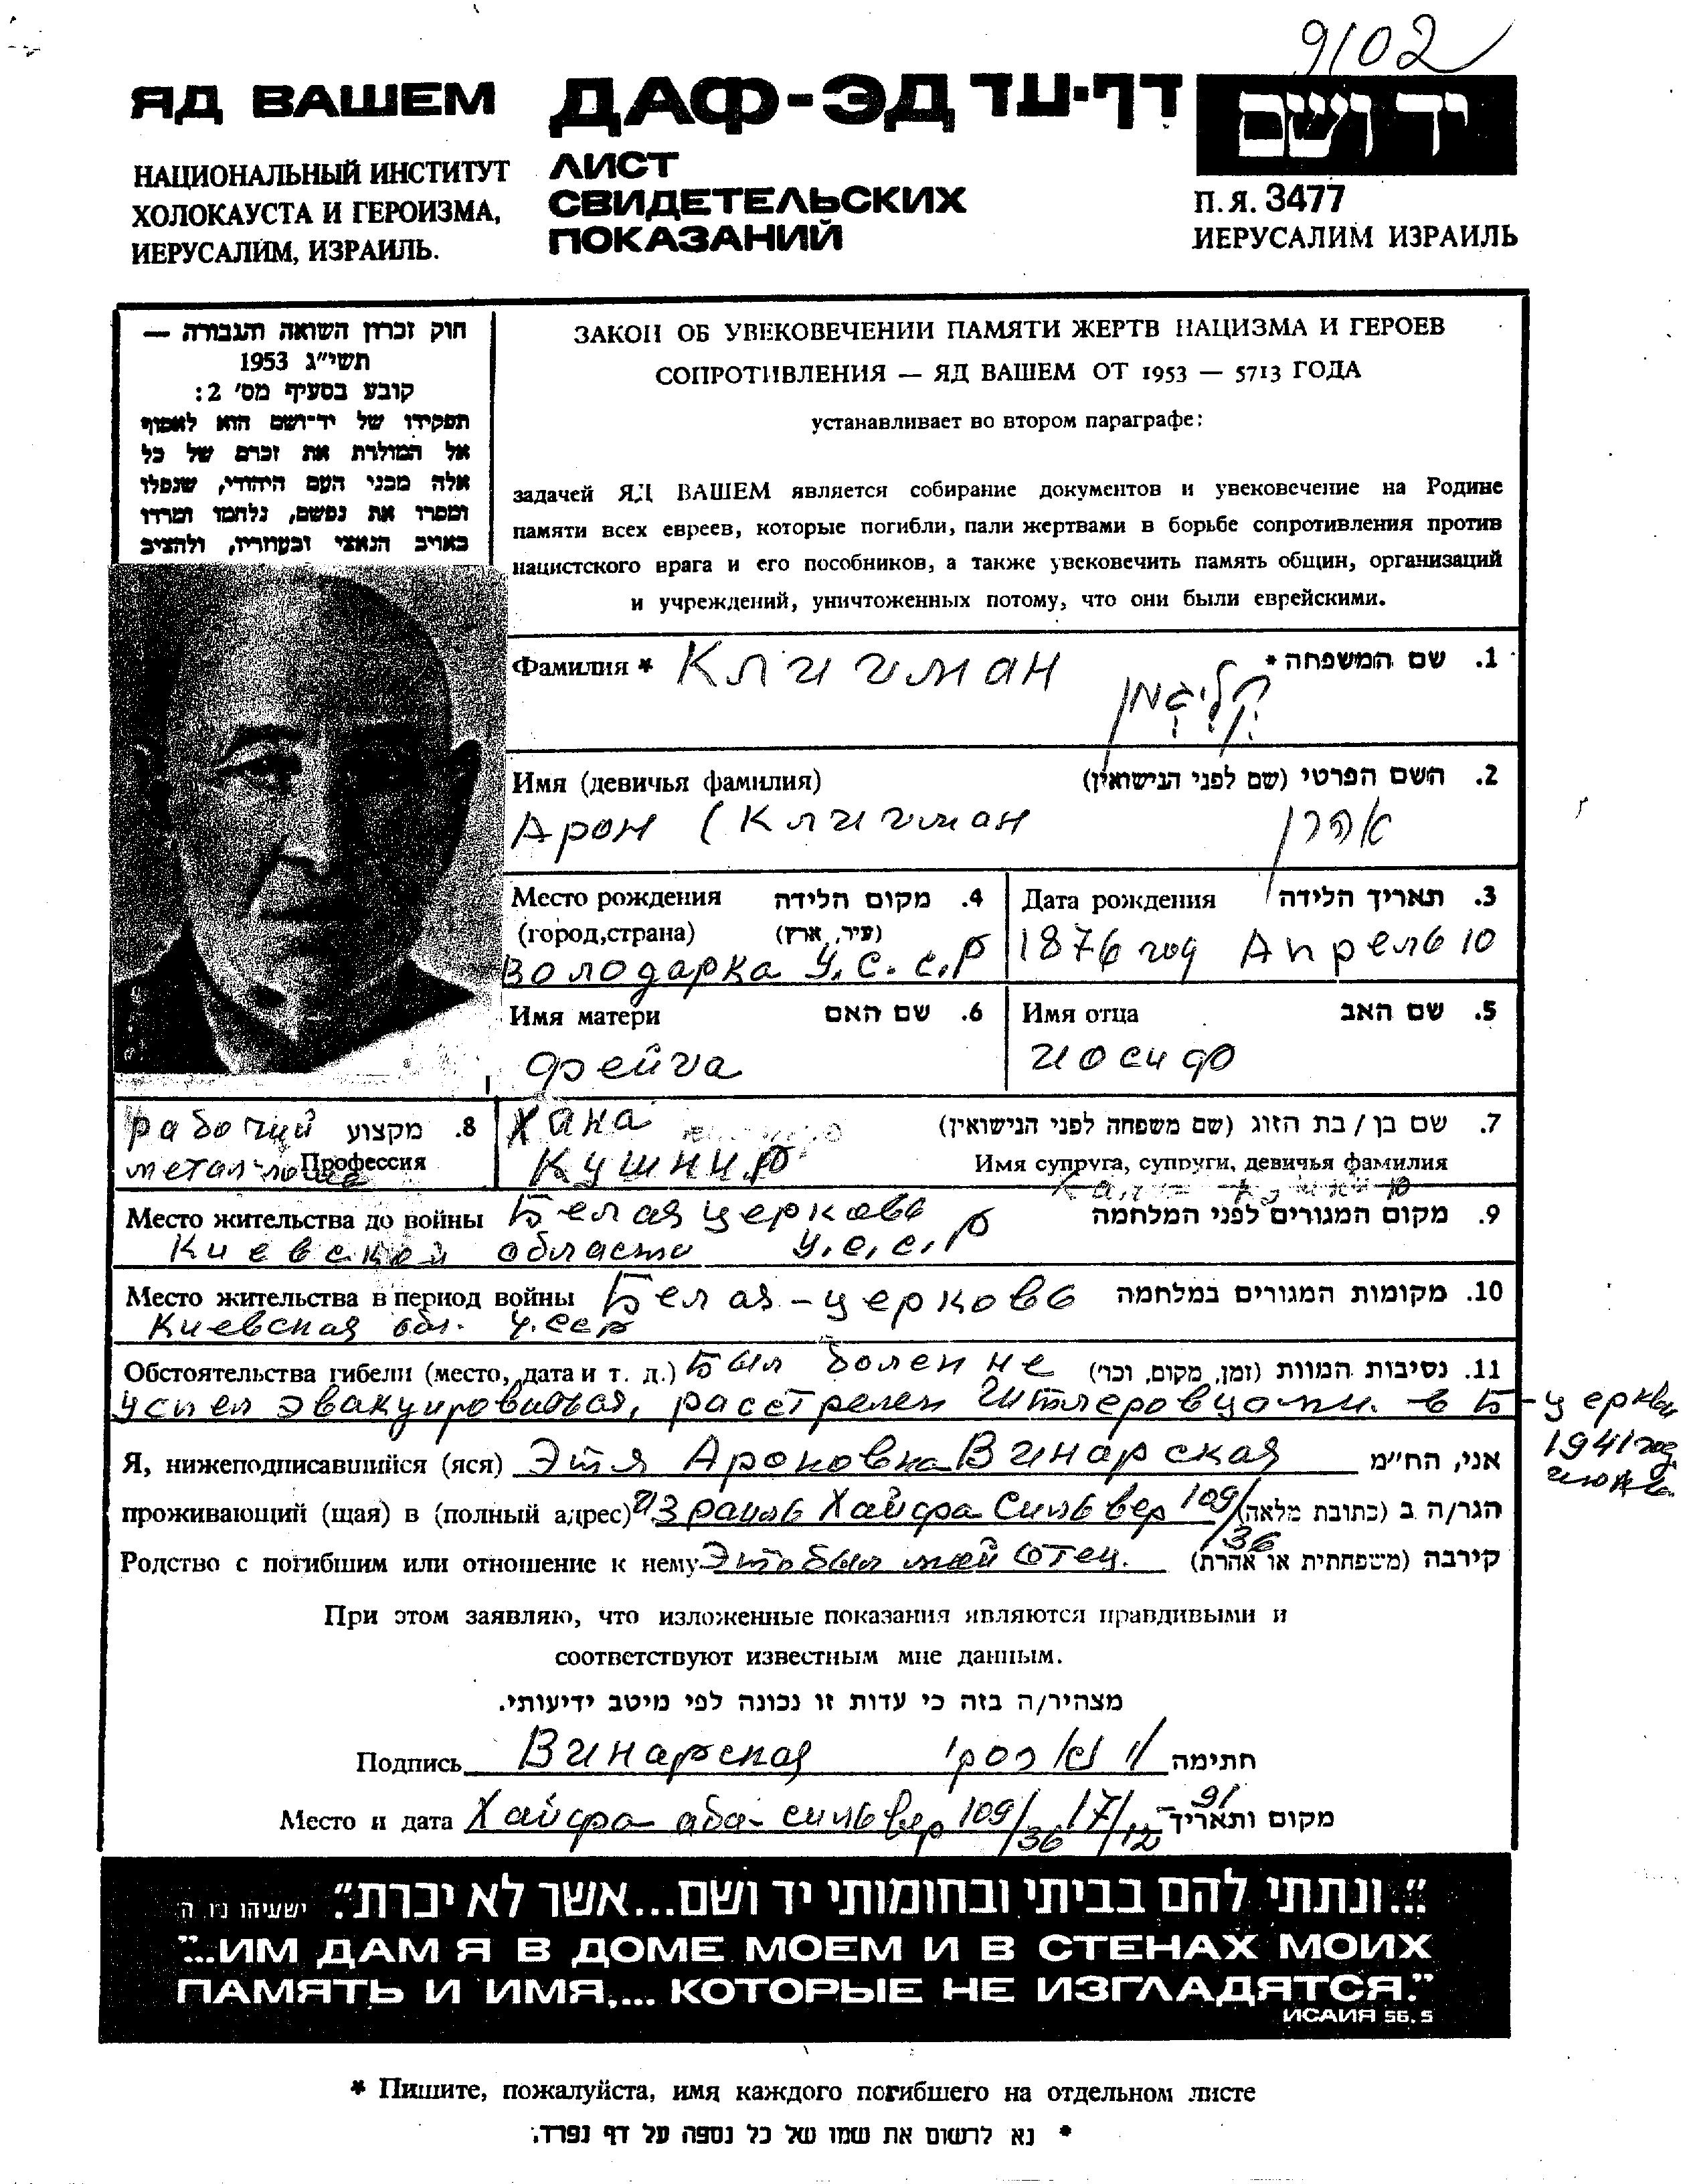 9102
ЯД ВАШЕМ
НАЦИОНАЛЬНЫЙ ИНСТИТУТ
ХОЛОКАУСТА И ГЕРОИЗМА,
ИЕРУСАЛИМ, ИЗРАИЛЬ.
ДАФ-ЭД דף-עד
ЛИСТ
СВИДЕТЕЛЬСКИХ
ПОКАЗАНИЙ
יד ושם
П.Я. 3477
ИЕРУСАЛИМ ИЗРАИЛЬ
חוק זכרון השואה והגבורה —
תשי״ג 1953
קובע בסעיף מס׳ 2:
תפקידו של יד-ושם הוא לאסוף
אל המולדת את זכרם של כל
אלה מבני העם היהודי, שנפלו
ומסרו את נפשם, נלחמו ומרדו
באויב הנאצי ובעוזריו, ולהציב
ЗАКОН ОБ УВЕКОВЕЧЕНИИ ПАМЯТИ ЖЕРТВ НАЦИЗМА И ГЕРОЕВ
СОПРОТИВЛЕНИЯ — ЯД ВАШЕМ ОТ 1953 — 5713 ГОДА
устанавливает во втором параграфе:
задачей ЯД ВАШЕМ является собирание документов и увековечение на Родине
памяти всех евреев, которые погибли, пали жертвами в борьбе сопротивления против
нацистского врага и его пособников, а также увековечить память общин, организаций
и учреждений, уничтоженных потому, что они были еврейскими.
Фамилия * Клигман 1. שם המשפחה *
קליגמן
Имя (девичья фамилия) 2. השם הפרטי (שם לפני הנישואין)
Арон (Клигман אהרן
Место рождения 4. מקום הלידה
(город,страна) (עיר, ארץ)
Володарка У.С.С.Р
Дата рождения 3. תאריך הלידה
1876 год Апрель 10
Имя матери 6. שם האם
Фейга
Имя отца 5. שם האב
Иосиф
рабочий 8. מקצוע
Профессия
Хана 7. שם בן / בת הזוג (שם משפחה לפני הנישואין)
Кушнир Имя супруга, супруги, девичья фамилия
Место жительства до войны Белая церковь 9. מקום המגורים לפני המלחמה
Киевской области У.С.С.Р
Место жительства в период войны Белая-церковь 10. מקומות המגורים במלחמה
Киевская обл. У.ССР
Обстоятельства гибели (место, дата и т. д.) Был болен не 11. נסיבות המוות (זמן, מקום, וכו׳)
успел эвакуироваться, расстрелен Гитлеровцами. в Б-церкви
1941 год
Я, нижеподписавшийся (яся) Этя Ароновна Винарская אני, הח״מ
проживающий (щая) в (полный адрес) Израиль Хайфа Сильвер 109/36 הגר/ה ב (כתובת מלאה)
Родство с погибшим или отношение к нему Это был мой отец. קירבה (משפחתית או אחרת)
При этом заявляю, что изложенные показания являются правдивыми и
соответствуют известным мне данным.
מצהיר/ה בזה כי עדות זו נכונה לפי מיטב ידיעותי.
Подпись Винарская חתימה
Место и дата Хайфа аба-сильвер 109/36 17/12-91 מקום ותאריך
״...ונתתי להם בביתי ובחומותי יד ושם...אשר לא יכרת״. ישעיהו נ״ו, ה
"...ИМ ДАМ Я В ДОМЕ МОЕМ И В СТЕНАХ МОИХ
ПАМЯТЬ И ИМЯ,... КОТОРЫЕ НЕ ИЗГЛАДЯТСЯ."
ИСАИЯ 56.5
* Пишите, пожалуйста, имя каждого погибшего на отдельном листе
* נא לרשום את שמו של כל נספה על דף נפרד.